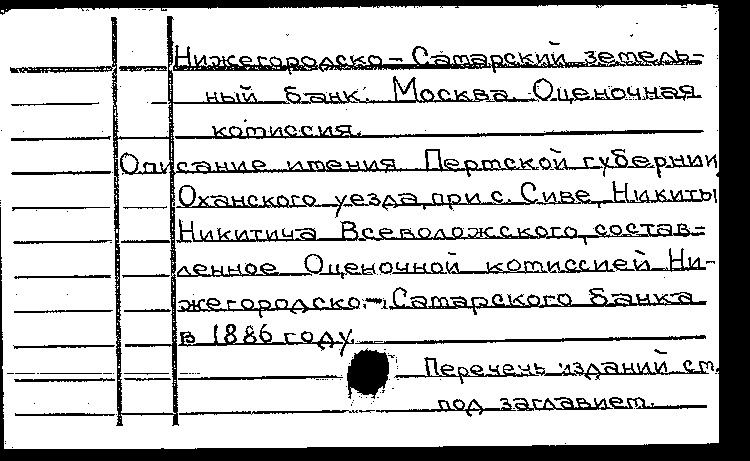 Нижегородско-Самарский земель-
ный банк. Москва. Оценочная
комиссия.
Описание имения Пермской губернии
Оханского уезда, при с. Сиве, Никиты
Никитича Всеволожского, состав-
ленное Оценочной комиссией Ни-
жегородско-Самарского банка
в 1886 году.
Перечень изданий см.
под заглавием.